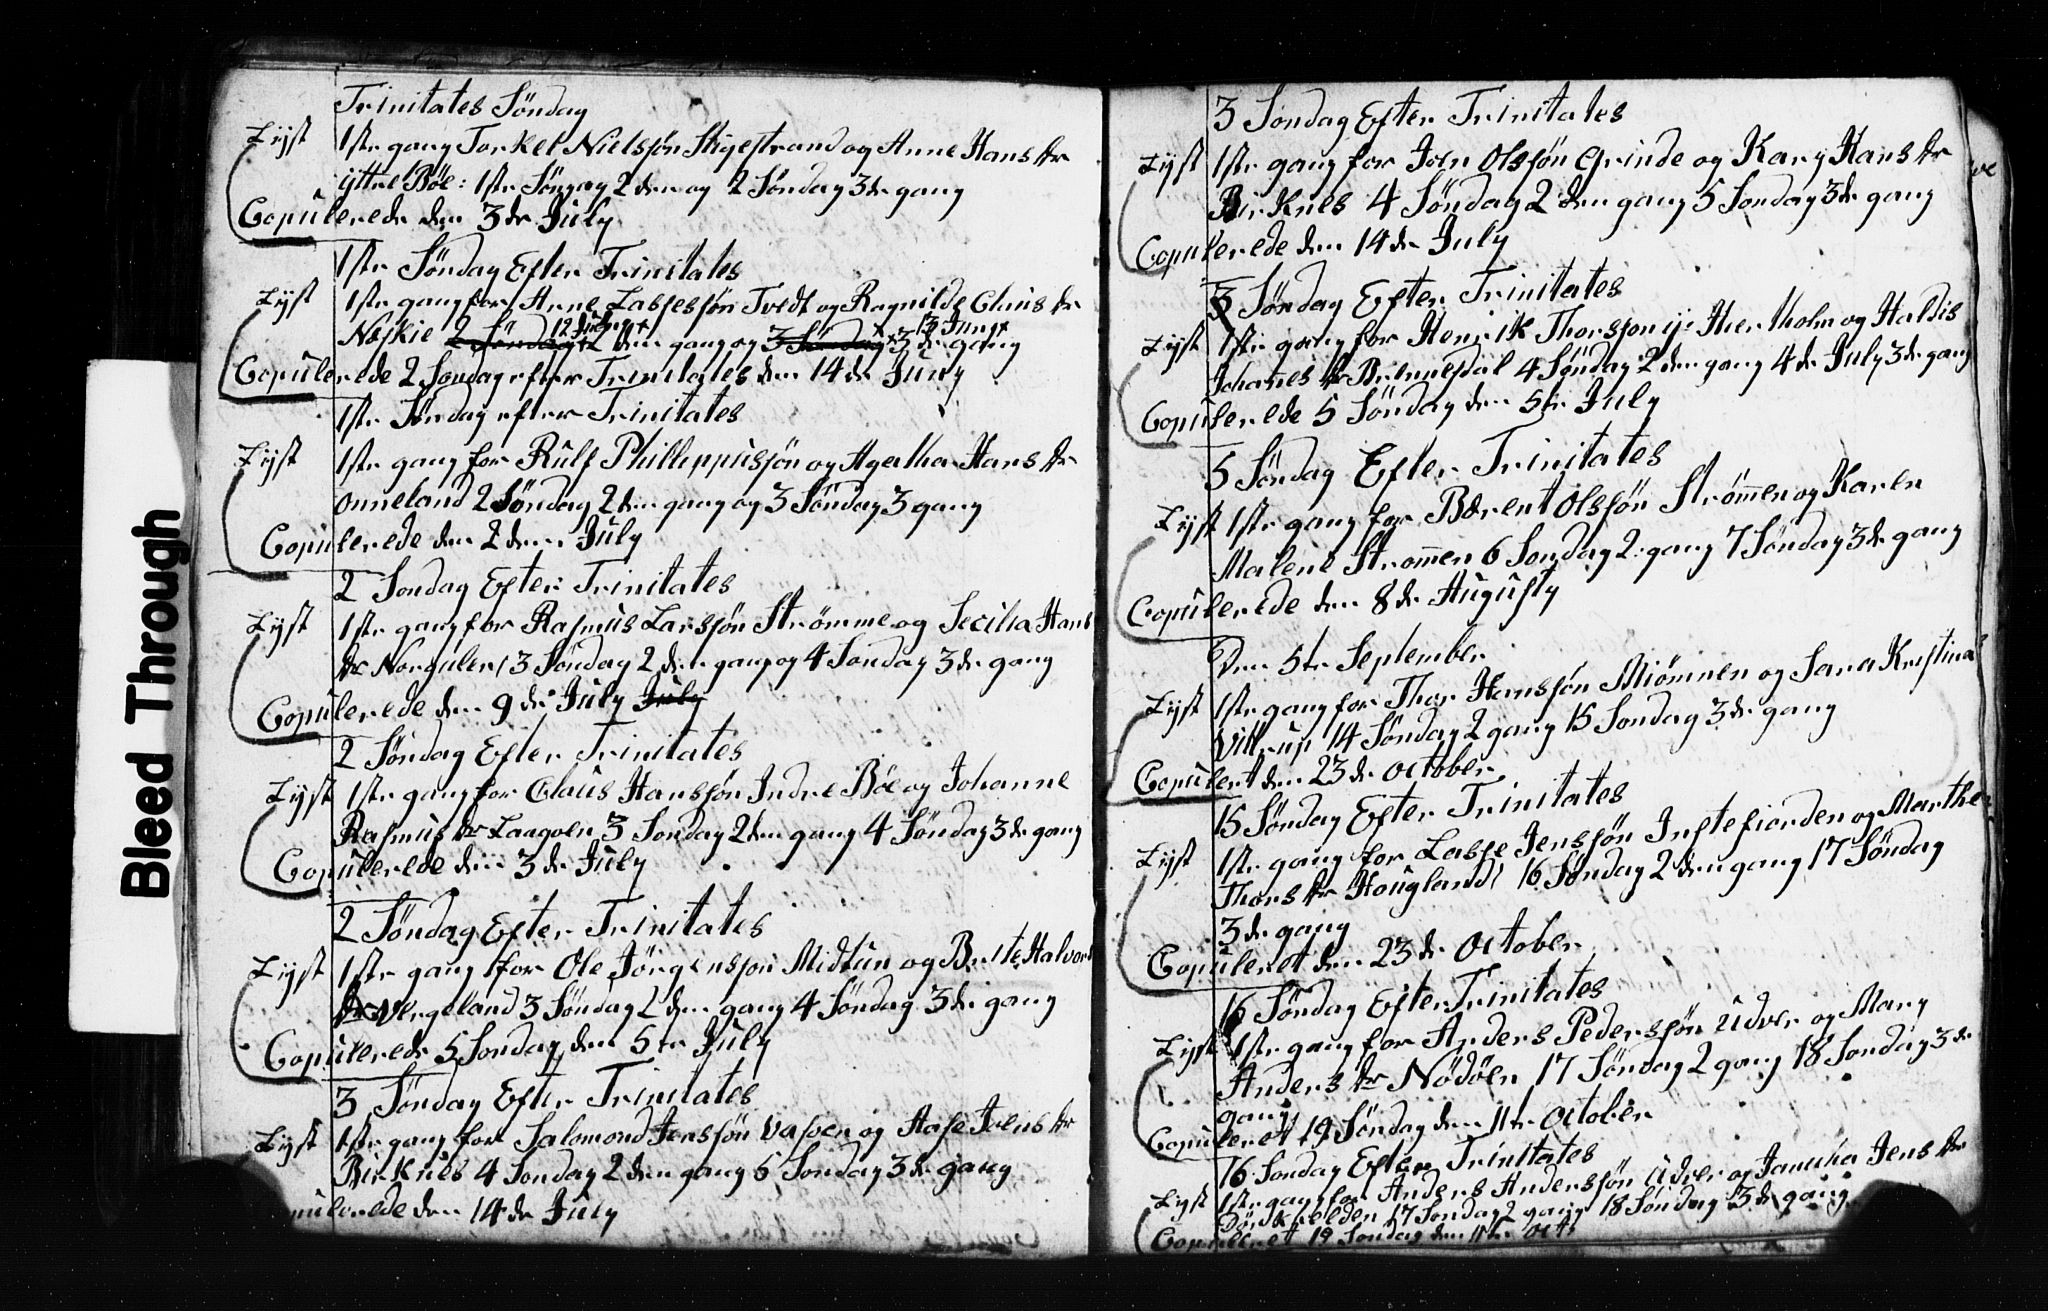 Bleed Through
Trinitates Söndag
Lÿst 1ste gang Torkel Nielssön Stigestrand og Anne Hans dtr
ÿttre Böe: 1ste Söndag 2den og 2 Söndag 3de gang
Copulerede den 3de Julÿ
1ste Söndag Efter Trinitates
Lÿst 1ste gang for Arne Lassessön Tvedt og Ragnilde Claus dtr
12 Junÿ 13 Junÿ
Neskie 2 Söndag 2den gang og 3 Söndag 3de gang
Copulerede 2 Söndag efter Trinitates den 14de Junÿ
1ste Söndag efter Trinitates
Lÿst 1ste gang for Rulf Philleppussön og Agatha Hans dtr
onneland 2 Söndag 2den gang og 3 Söndag 3 gang
Copulerede den 2den Julÿ
2 Söndag Efter Trinitates
Lÿst 1ste gang for Rasmus Larssön Strömme og Secilia Hans
dtr Norgulen 3 Söndag 2den gang og 4 Söndag 3de gang
Copulerede den 9de Julÿ Julÿ
2 Söndag Efter Trinitates
Lÿst 1ste gang for Claus Hanssön Indre Böe og Johanne
Rasmus dtr Langöen 3 Söndag 2den gang 4 Söndag 3de gang
Copulerede den 3de Julÿ
2 Söndag Efter Trinitates
Lÿst 1ste gang for Ole Jörgenssön Midtun og Brite Halvors
dtr Vergeland 3 Söndag 2den gang 4 Söndag 3de gang
Copulerede 5 Söndag den 5te Julÿ
3 Söndag Efter Trinitates
Lÿst 1ste gang for Salomond Jenssön Vasöen og Aase Joens dtr
Birknes 4 Söndag 2den gang 5 Söndag 3de gang
Copulerede den 14de Julÿ
3 Söndag Efter Trinitates
Lÿst 1ste gang for Joen Olssön Grinde og Karÿ Hans dtr
Birknes 4 Söndag 2den gang 5 Söndag 3de gang
Copulerede den 14de Julÿ
3 Söndag Efter Trinitates
Lÿst 1ste gang for Henrik Thorsson ÿ: Hiertholm og Haldis
Johanes dtr Brennesdal 4 Söndag 2den gang 4de Julÿ 3de gang
Copulerede 5 Söndag den 5te Julÿ
5 Söndag Efter Trinitates
Lÿst 1ste gang for Bærent Olssön Strömmen og Karen
Malene Strömmen 6 Söndag 2: gang 7 Söndag 3de gang
Copulerede den 8de Augustÿ
Den 5te September
Lÿst 1ste gang for Thor Hanssön Miömnen og Sara Kristina
Vittrup 14 Söndag 2 gang 15 Söndag 3de gang
Copulert den 23de October
15 Söndag Efter Trinitates
Lÿst 1ste gang for Lasse Jenssön Instefiorden og Marthe
Thors dtr Hougland 16 Söndag 2den gang 17 Söndag
3de gang
Copuleret den 23de October
16 Söndag Efter Trinitates
Lÿst 1ste gang for Anders Pederssön Udvær og Marÿ
Anders dtr Nödöen 17 Söndag 2 gang 18 Söndag 3de
gang
Copuleret 19 Söndag den 11te October
16 Söndag Efter Trinitates
Lÿst 1ste gang for Anders Anderssön Udvær og Jannicha Jens dtr
17 Söndag 2 gang 18 Söndag 3de gang
Copuleret 19 Söndag den 11te oct: